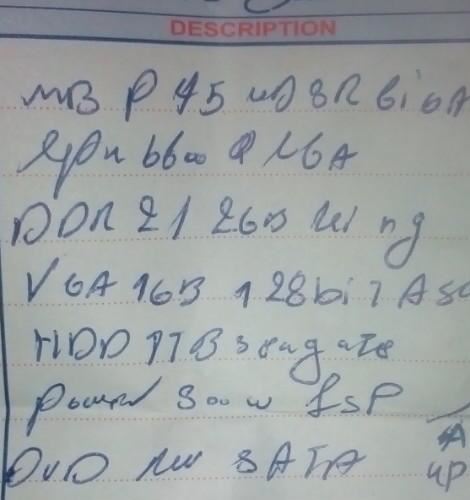 DESCRIPTION
MB P45 UD3R GIGA
CPU 6600
DDR 2 / 2GB King
VGA 1GB 128bit
HDD 1TB seagate
Power 300w FSP
DVD RW SATA
UP